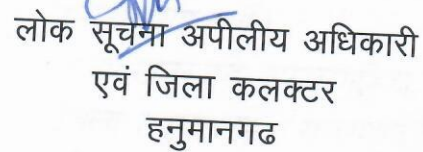 लोक सूचना अपीलीय अधिकारी
एवं जिला कलक्टर
हनुमानगढ